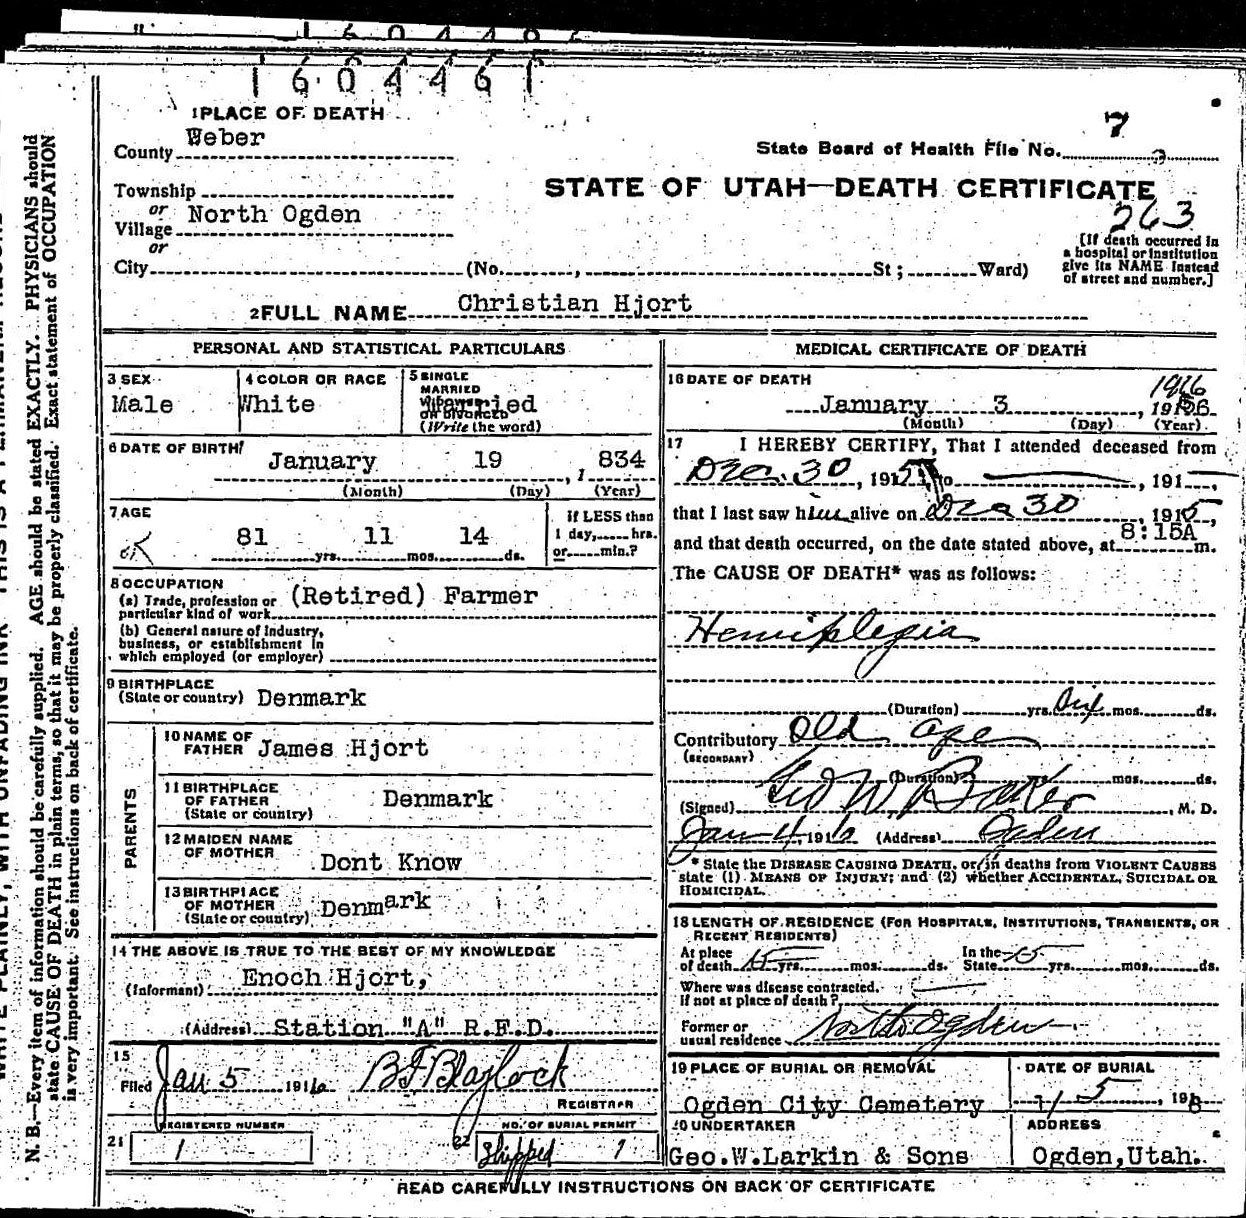 1604461
1 PLACE OF DEATH
County Weber
State Board of Health File No. 7
Township
STATE OF UTAH—DEATH CERTIFICATE
or
Village North Ogden
263
or
City (No. , St; Ward)
[If death occurred in
a hospital or institution
give its NAME instead
of street and number.]
2 FULL NAME Christian Hjort
PERSONAL AND STATISTICAL PARTICULARS
3 SEX
Male
4 COLOR OR RACE
White
5 SINGLE
MARRIED
WIDOWED
OR DIVORCED
(Write the word)
6 DATE OF BIRTH
January 19, 1 834
(Month) (Day) (Year)
7 AGE
OK 81 yrs. 11 mos. 14 ds.
If LESS than
1 day, hrs.
or min.?
8 OCCUPATION
(a) Trade, profession or
particular kind of work (Retired) Farmer
(b) General nature of industry,
business, or establishment in
which employed (or employer)
9 BIRTHPLACE
(State or country) Denmark
PARENTS
10 NAME OF
FATHER James Hjort
11 BIRTHPLACE
OF FATHER Denmark
(State or country)
12 MAIDEN NAME
OF MOTHER
Dont Know
13 BIRTHPLACE
OF MOTHER
(State or country) Denmark
14 THE ABOVE IS TRUE TO THE BEST OF MY KNOWLEDGE
(Informant) Enoch Hjort,
(Address) Station "A" R.F.D.
15
Filed Jan 5 1916 B F Blaylock
REGISTRAR
REGISTERED NUMBER
21 1
NO. OF BURIAL PERMIT
22 Shipped 1
MEDICAL CERTIFICATE OF DEATH
16 DATE OF DEATH
1916
January 3, 191
(Month) (Day) (Year)
17 I HEREBY CERTIFY, That I attended deceased from
Dec. 30, 1915, to , 191 ,
that I last saw him alive on Dec 30, 1915,
and that death occurred, on the date stated above, at 8:15A m.
The CAUSE OF DEATH* was as follows:
Hemiplegia
(Duration) yrs. Six mos. ds.
Contributory Old age
(SECONDARY)
(Duration) yrs mos. ds.
(Signed) Geo W Baker, M. D.
Jan 4, 1916 (Address) Ogden
* State the DISEASE CAUSING DEATH, or, in deaths from VIOLENT CAUSES
state (1) MEANS OF INJURY; and (2) whether ACCIDENTAL, SUICIDAL OR
HOMICIDAL.
18 LENGTH OF RESIDENCE (FOR HOSPITALS, INSTITUTIONS, TRANSIENTS, OR
RECENT RESIDENTS)
At place
of death 15 yrs. mos. ds. In the
State 15 yrs. mos. ds.
Where was disease contracted.
if not at place of death?
Former or
usual residence North Ogden
19 PLACE OF BURIAL OR REMOVAL
Ogden City Cemetery
DATE OF BURIAL
1/ 5, 191
20 UNDERTAKER
Geo.W.Larkin & Sons
ADDRESS
Ogden,Utah.
READ CAREFULLY INSTRUCTIONS ON BACK OF CERTIFICATE
N. B.—Every item of information should be carefully supplied. AGE should be stated EXACTLY. PHYSICIANS should
state CAUSE OF DEATH in plain terms, so that it may be properly classified. Exact statement of OCCUPATION
is very important. See instructions on back of certificate.